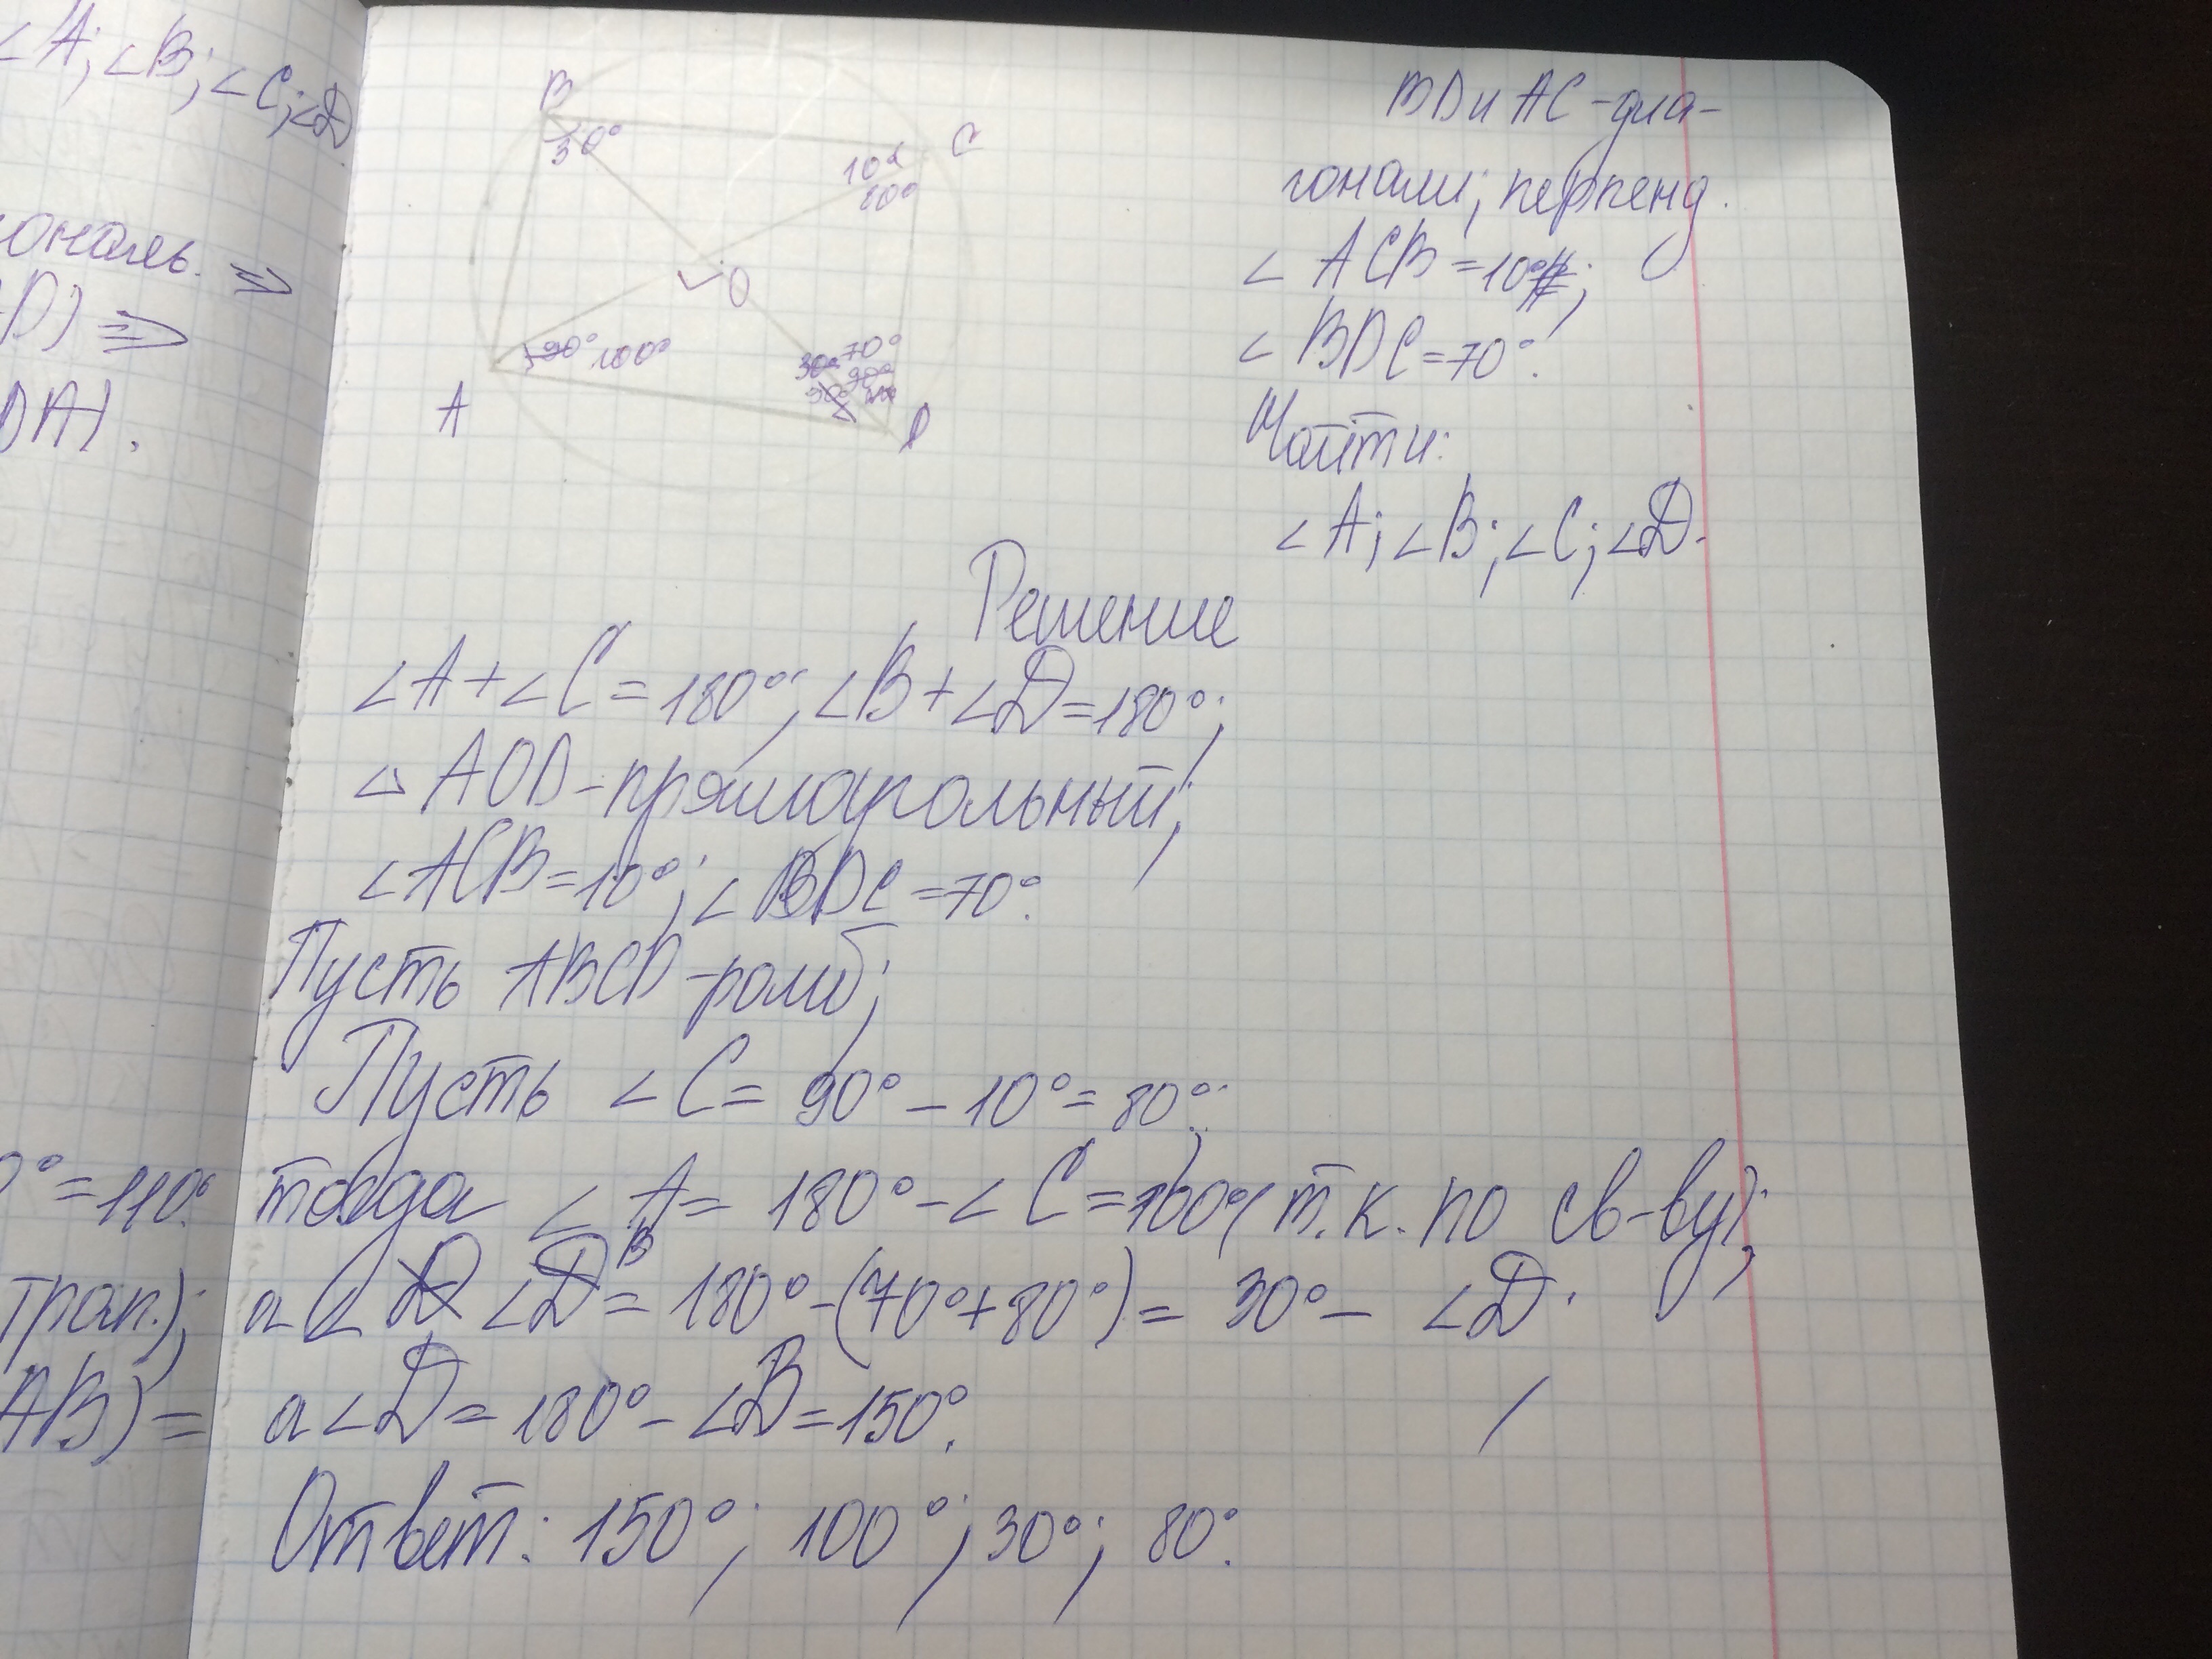 ∠A; ∠B; ∠C; ∠D
ональ. ⇒
D) ⇒
DA).
0°=110°.
трап.);
AB)=
B
30°
C
10°
80°
O
90° 100°
30° 70°
90°
30°
A
D
BD и AC - диа-
гонали; перпенд.
∠ACB=10°;
∠BDC=70°.
Найти:
∠A; ∠B; ∠C; ∠D.
Решение
∠A+∠C=180°; ∠B+∠D=180°;
△AOD-прямоугольный;
∠ACB=10°; ∠BDC=70°.
Пусть ABCD-ромб;
Пусть ∠C= 90°-10°=80°;
тогда ∠A= 180°-∠C=100°(т.к. по св-ву);
а ∠B= 180°-(70°+80°)= 30°- ∠D.
а ∠D= 180°-∠B=150°.
Ответ: 150°; 100°; 30°; 80°.